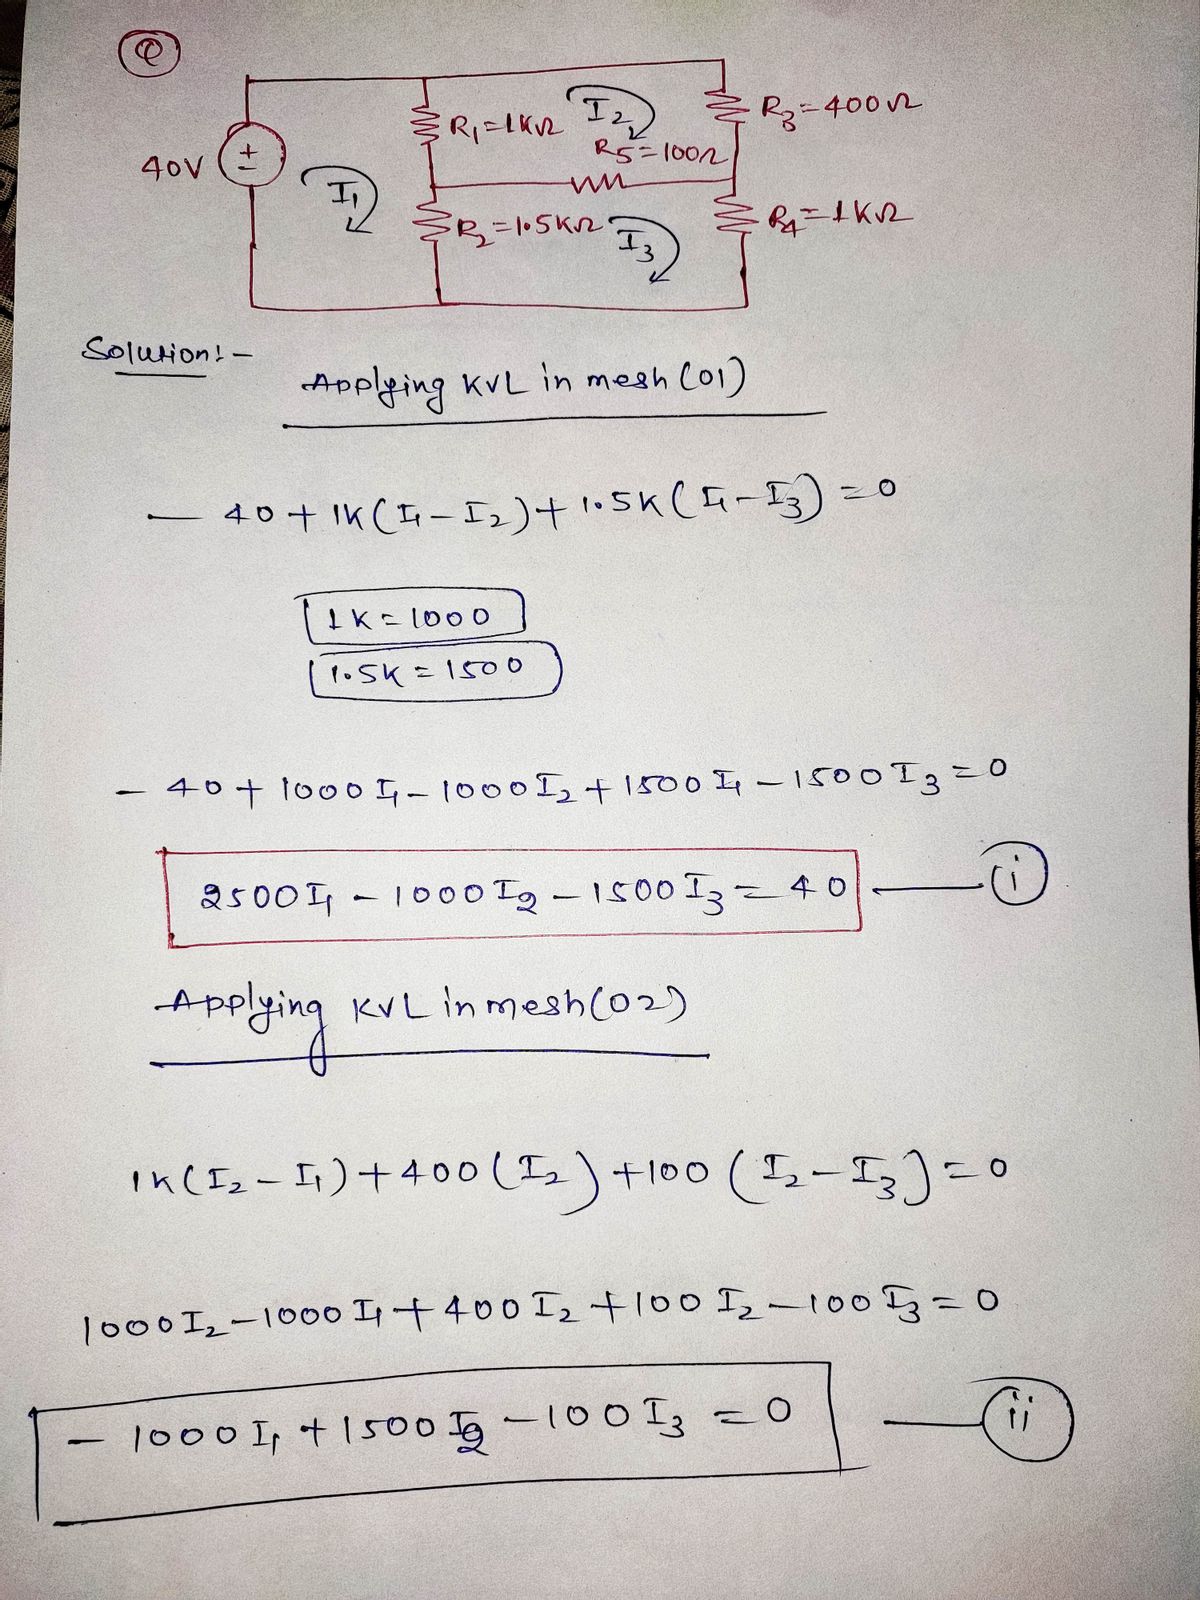 Q
40V
+
-
R₁=1KΩ
I₂
R₃=400Ω
R5=100Ω
I₁
R₂=1.5KΩ
I₃
R₄=1KΩ
Solution:-
Applying KVL in mesh (01)
- 40 + 1K(I₁-I₂)+1.5K(I₁-I₃)=0
1K=1000
1.5K=1500
- 40+1000I₁-1000I₂+1500I₁-1500I₃=0
2500I₁-1000I₂-1500I₃=40 — i
Applying KVL in mesh(02)
1K(I₂-I₁)+400(I₂)+100(I₂-I₃)=0
1000I₂-1000I₁+400I₂+100I₂-100I₃=0
- 1000I₁+1500I₂-100I₃=0 — ii